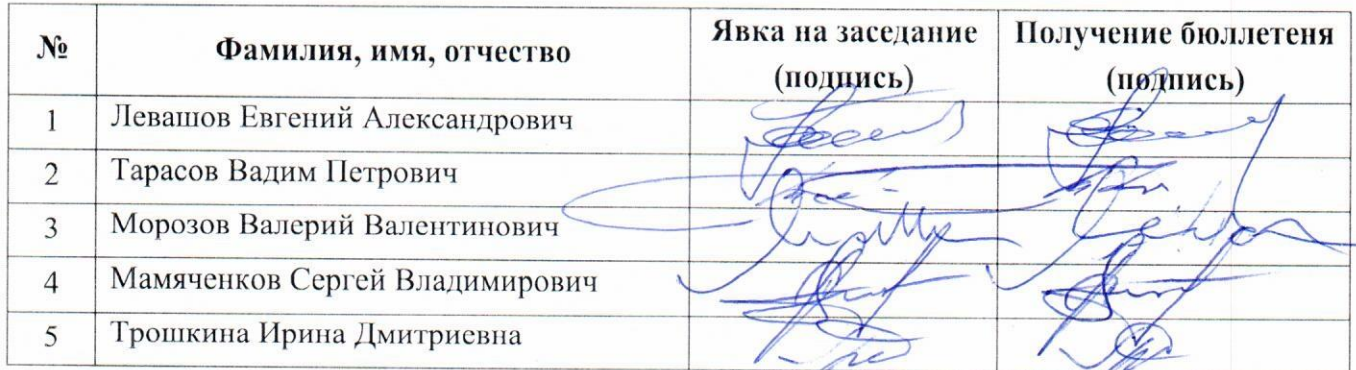 № Фамилия, имя, отчество Явка на заседание (подпись) Получение бюллетеня (подпись)
1 Левашов Евгений Александрович
2 Тарасов Вадим Петрович
3 Морозов Валерий Валентинович
4 Мамяченков Сергей Владимирович
5 Трошкина Ирина Дмитриевна